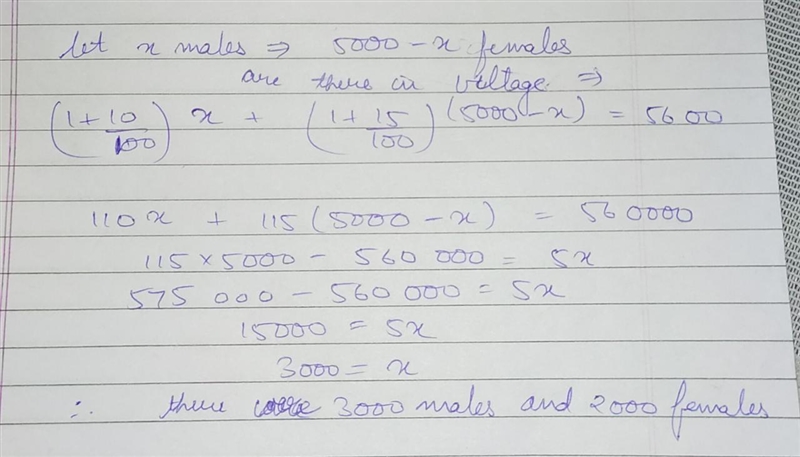 let x males ⇒ 5000 - x females
are there in voltage ⇒
(1 + 10/100) x + (1 + 15/100) (5000 - x) = 5600
110x + 115 (5000 - x) = 560000
115 × 5000 - 560 000 = 5x
575 000 - 560 000 = 5x
15000 = 5x
3000 = x
∴ there were 3000 males and 2000 females